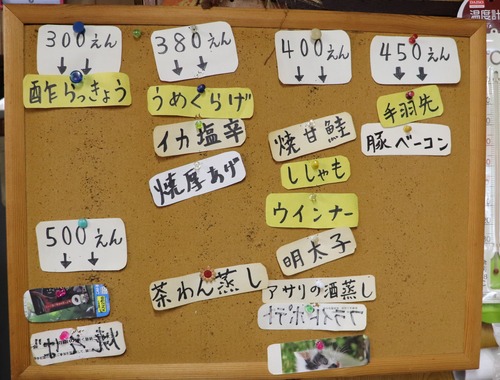 300えん
酢らっきょう
380えん
うめくらげ
イカ塩辛
焼厚あげ
400えん
焼甘鮭
ししゃも
ウインナー
明太子
450えん
手羽先
豚ベーコン
500えん
茶わん蒸し
アサリの酒蒸し
フライドポテト
温度計